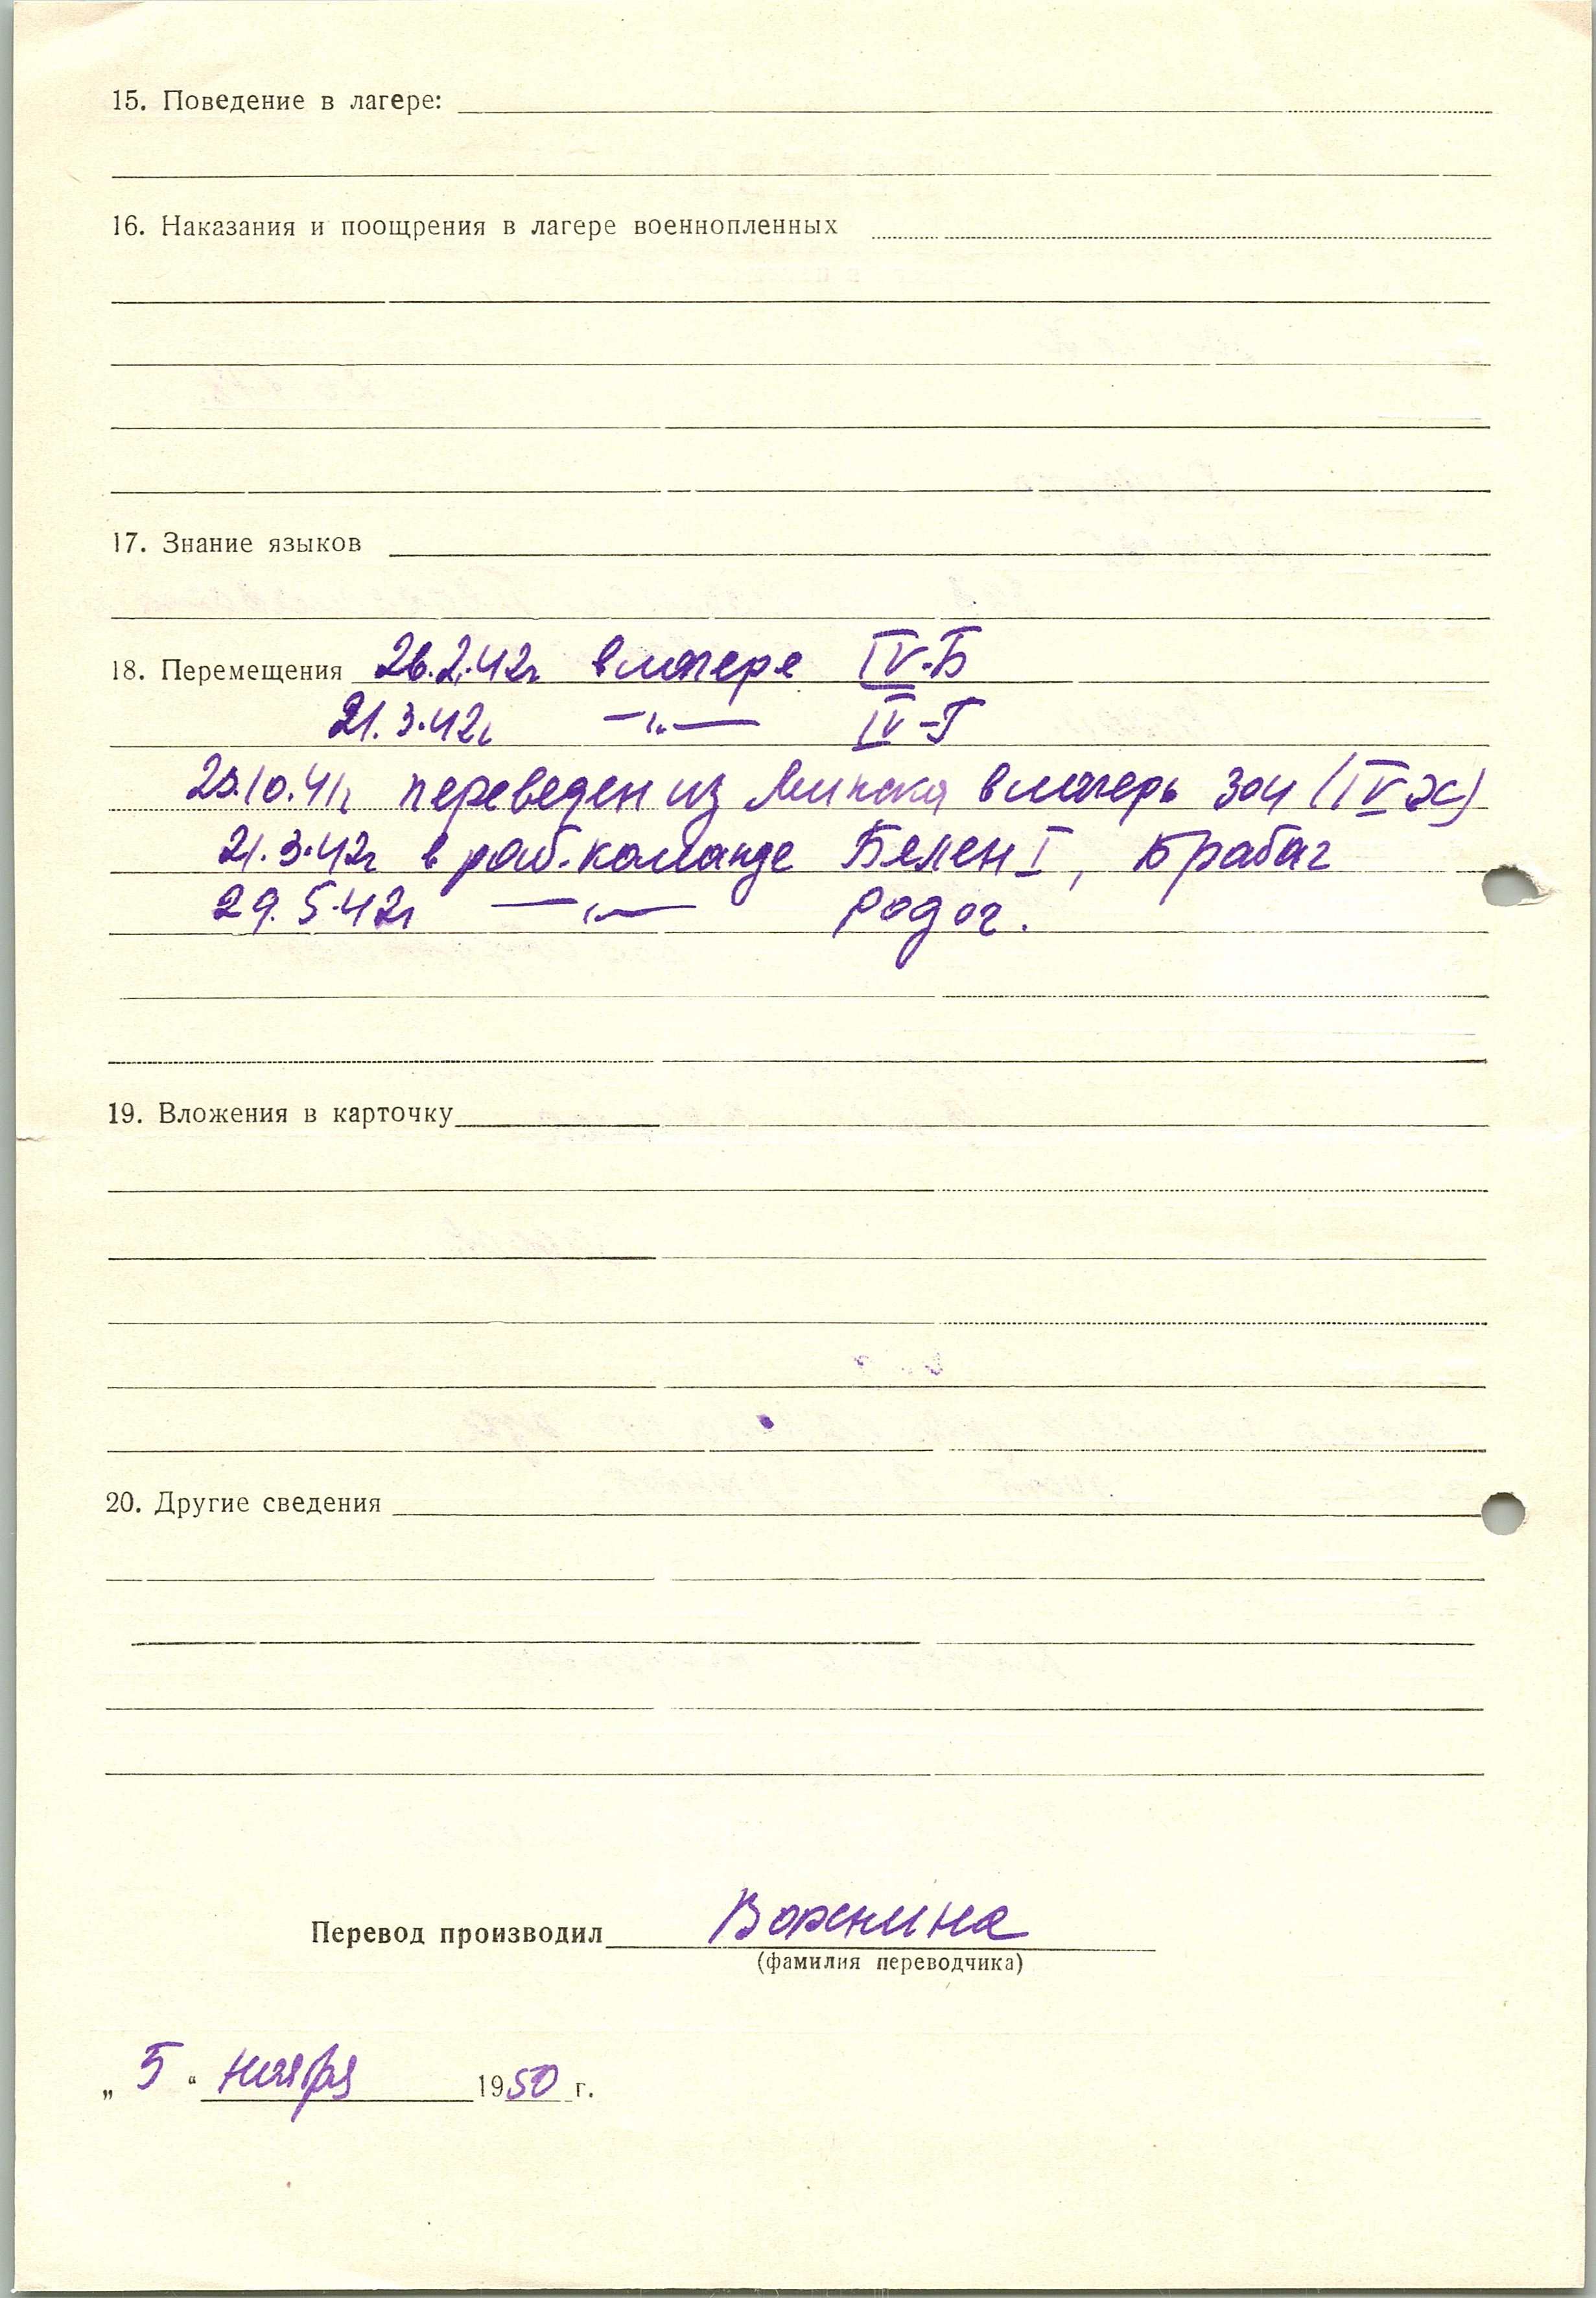 15. Поведение в лагере:
16. Наказания и поощрения в лагере военнопленных
17. Знание языков
18. Перемещения 26.2.42г в лагере IV-Б
21.3.42г —„— IV-Г
переведен из Минска в лагерь 304 (IV Ж)
21.3.42г в раб. команде Белен I, Брабаг
29.5.42г —„— Родог.
19. Вложения в карточку
20. Другие сведения
Перевод производил
(фамилия переводчика)
„ 5 “ ноября 1950 г.